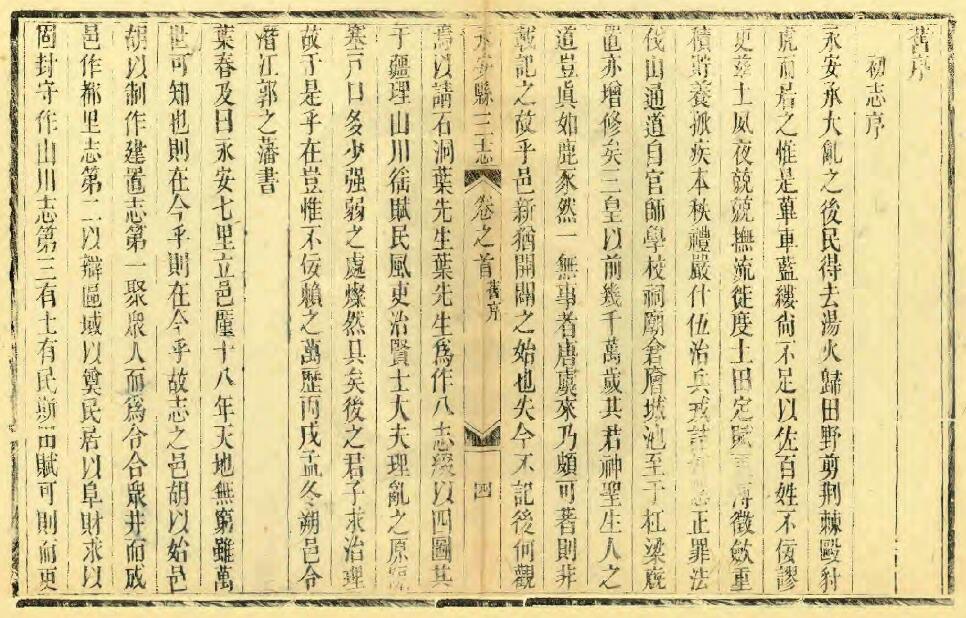 舊序
初志序
永安承大亂之後民得去湯火歸田野剪荆棘毆豺
虎而居之惟是蓽車藍縷尙不足以佐百姓不佞謬
吏玆土夙夜兢兢撫流徙度土田定賦 徵斂重
積貯養孤疾本秩禮嚴什伍治兵戎詰 正罪法
伐山通道自官師學校祠廟倉廥城池至于杠梁庶
置亦增修矣三皇以前幾千萬歲其若神聖生人之
道豈眞如鹿豕然一無事者唐虞來乃頗可著則非
載記之故乎邑新猶開闢之始也失今不記後何觀
永安縣三志 卷之首 舊序 四
焉以請石洞葉先生葉先生爲作八志後以四圖其
于疆理山川徭賦民風吏治賢士大夫理亂之原
塞戸口多少强弱之處燦然具矣後之君子求治理
故于是乎在豈惟不佞賴之萬歷丙戌孟冬朔邑令
潛江郭之藩書
葉春及曰永安七里立邑厪十八年天地無窮雖萬
世可知也則在今乎則在今乎故志之邑胡以始邑
胡以制作建置志第一聚衆人而爲合合衆井而成
邑作都里志第二以辯區域以奠民居以阜財求以
固封守作山川志第三有土有民斯田賦可則而吏